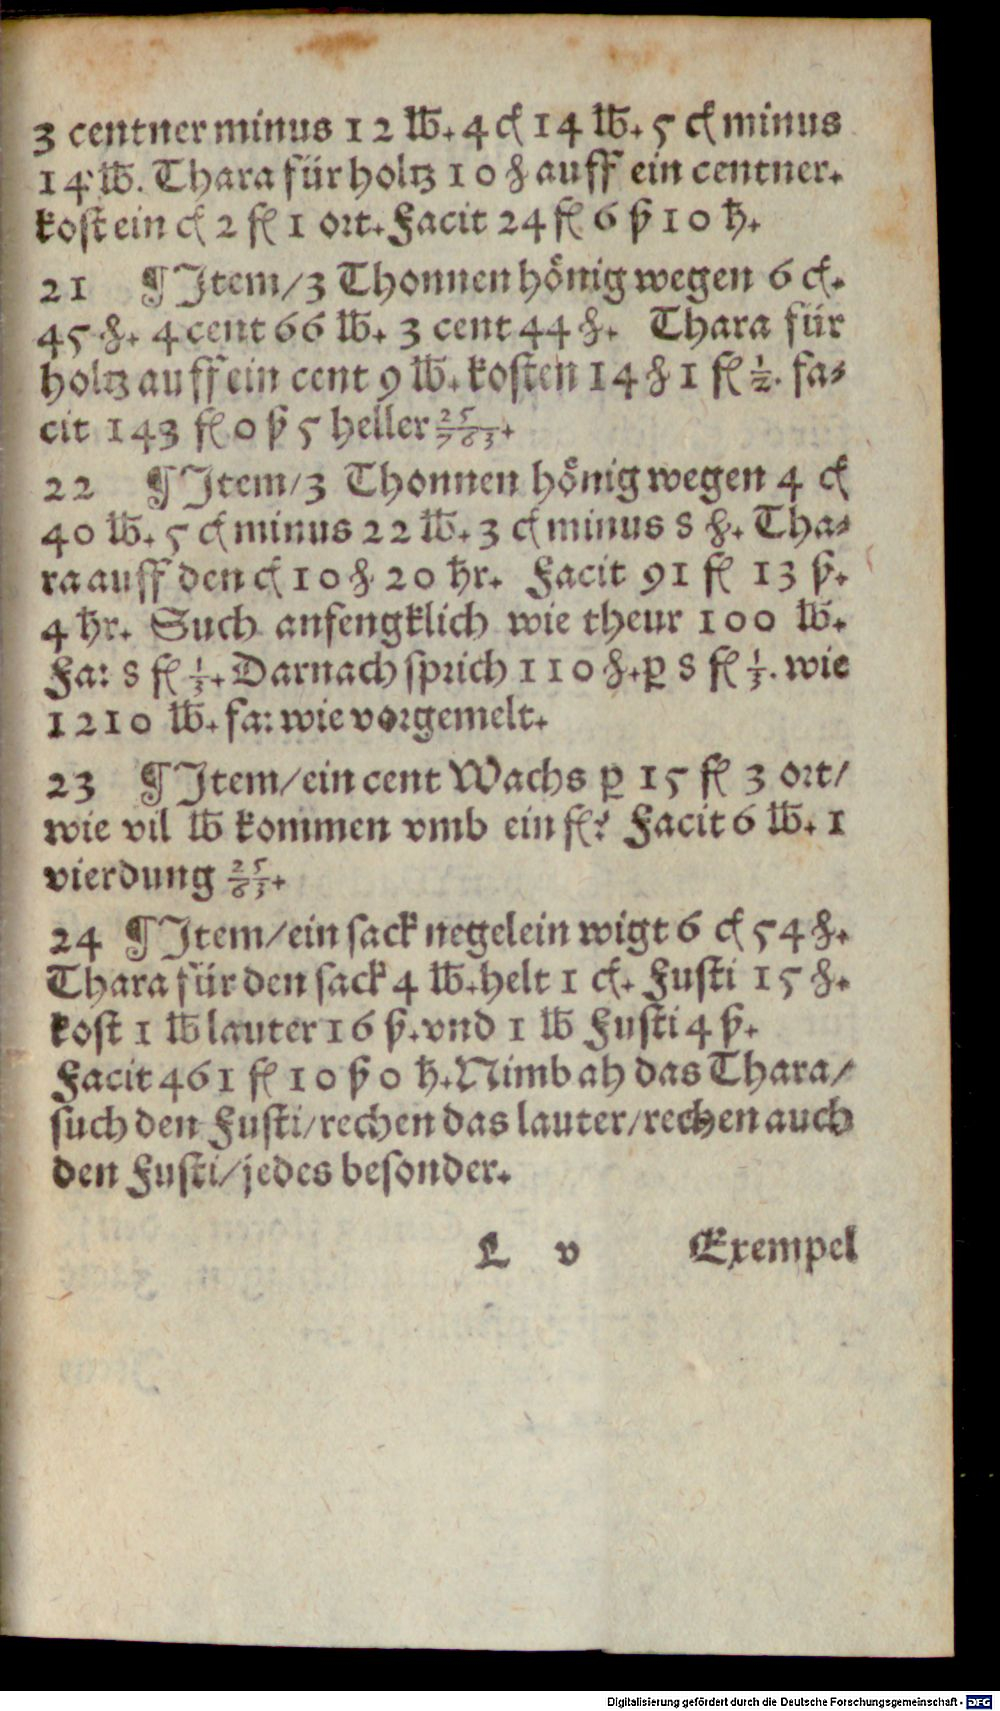 3 centner minus 12 ℔. 4 ct 14 ℔. 5 ct minus
14 ℔. Thara für holtz 10 ₰ auff ein centner.
kost ein ct 2 fl 1 ort. Facit 24 fl 6 ß 10 hr.
21 ¶ Item/3 Thonnen hönig wegen 6 ct.
45 ₰. 4 cent 66 ℔. 3 cent 44 ₰. Thara für
holtz auff ein cent 9 ℔. kosten 14 ₰ 1 fl 1/2. fa⸗
cit 143 fl 0 ß 5 heller 25/763.
22 ¶ Item/3 Thonnen hönig wegen 4 ct
40 ℔. 5 ct minus 22 ℔. 3 ct minus 8 ₰. Tha⸗
ra auff den ct 10 ₰ 20 hr. Facit 91 fl 13 ß.
4 hr. Such anfengklich wie theur 100 ℔.
Fa: 8 fl 1/3. Darnach sprich 110 ₰. ꝑ 8 fl 1/3. wie
1210 ℔. fa: wie vorgemelt.
23 ¶ Item/ein cent Wachs ꝑ 15 fl 3 ort/
wie vil ℔ kommen vmb ein fl? Facit 6 ℔. 1
vierdung 25/63.
24 ¶ Item/ein sack negelein wigt 6 ct 54 ₰.
Thara für den sack 4 ℔. helt 1 ct. Fusti 15 ₰.
kost 1 ℔ lauter 16 ß. vnd 1 ℔ Fusti 4 ß.
Facit 461 fl 10 ß 0 hr. Nimb ah das Thara/
such den Fusti/rechen das lauter/rechen auch
den Fusti/jedes besonder.
L v Exempel
Digitalisierung gefördert durch die Deutsche Forschungsgemeinschaft - DFG